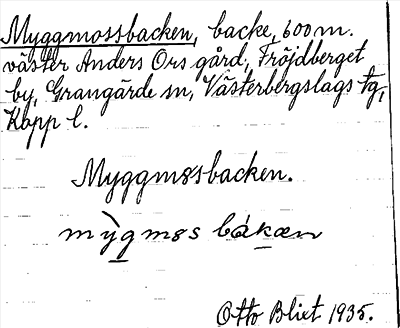 Myggmossbacken, backe, 600 m.
väster Anders Ors gård, Fröjdberget
by, Grangärde sn, Västerbergslags tg,
Kopp l.
Myggmåsbacken.
mỳgmøs bákæn
Otto Blixt 1935.